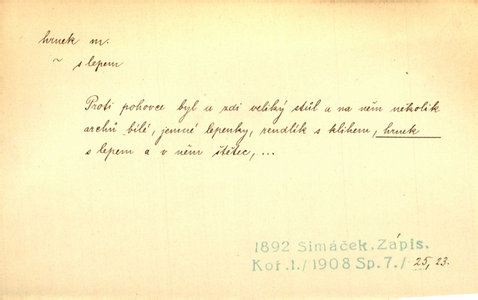 hrnek m.
~ s lepem
Proti pohovce byl u zdi veliký stůl a na něm několik
archů bílé, jemné lepenky, rendlík s klihem, hrnek
s lepem a v něm štětec, ...
1892 Šimáček. Zápis.
Koř.1./1908 Sp.7./ 25, 23.